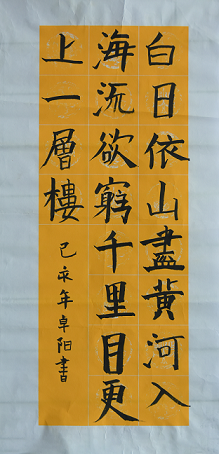 白日依山盡黄河入
海流欲窮千里目更
上一層樓
己亥年卓阳書